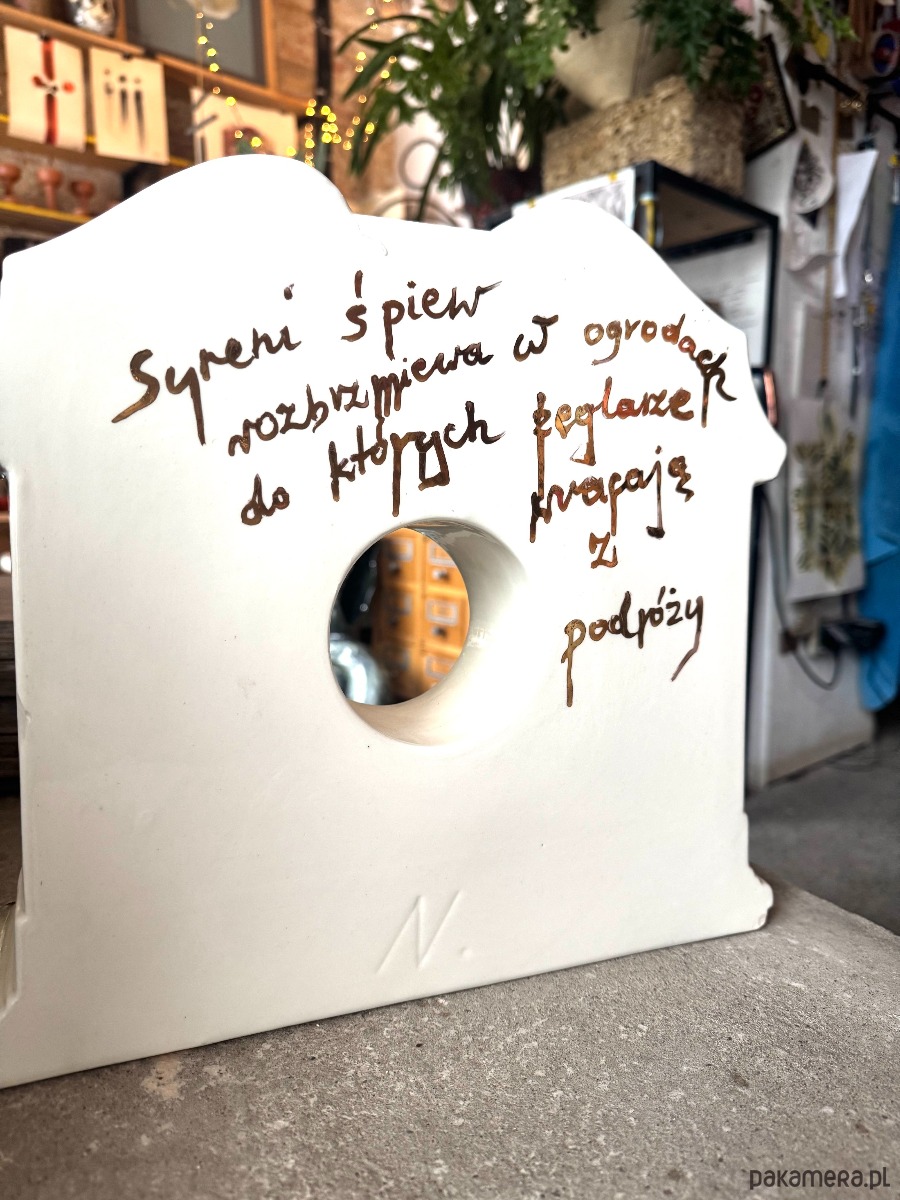 Syreni śpiew
rozbrzmiewa w ogrodach
do których żeglarze
wracają
z
podróży
N.
pakamera.pl